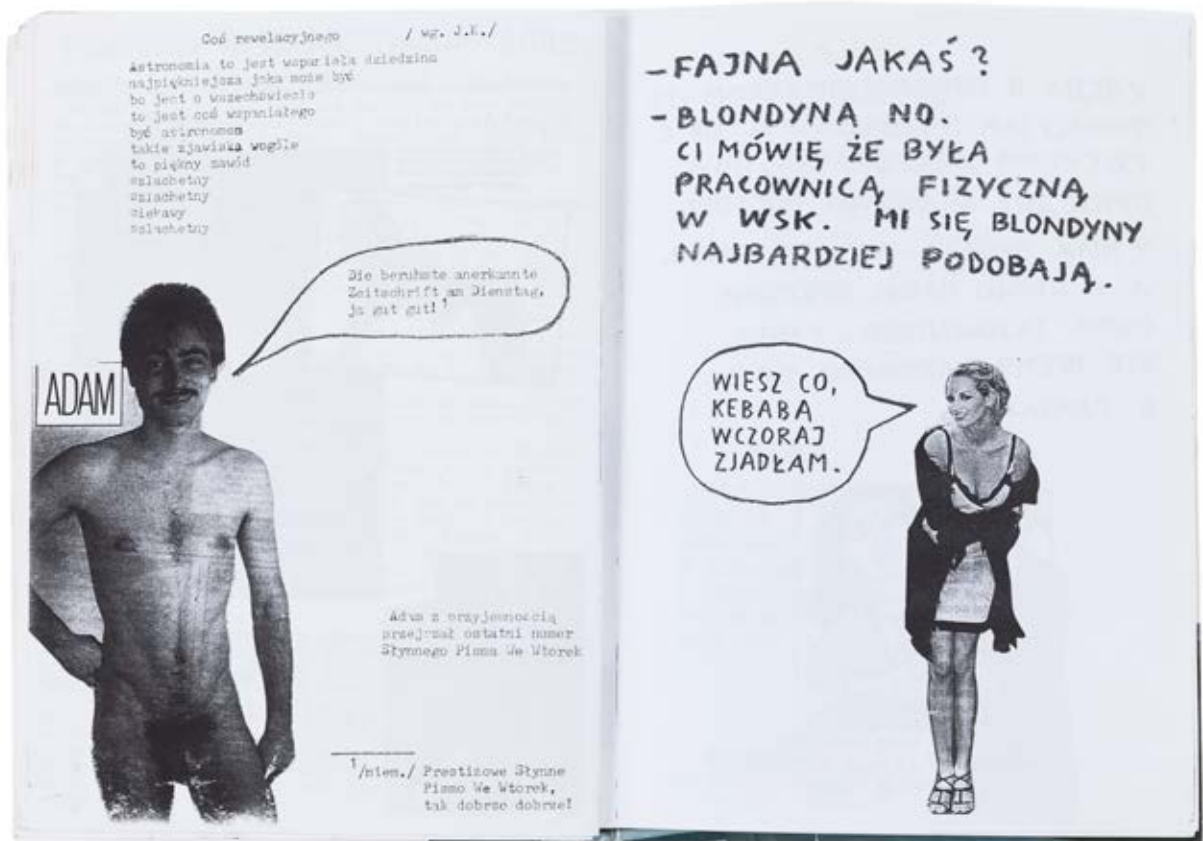 Coś rewelacyjnego / wg. J.K./
Astronomia to jest wspaniała dziedzina
najpiękniejsza jaka może być
bo jest o wszechświecie
to jest coś wspaniałego
być astronomem
takie zjawiska wogóle
to piękny zawód
szlachetny
szlachetny
ciekawy
szlachetny
Die beruhmte anerkannte
Zeitschrift am Dienstag,
ja gut gut! 1
ADAM
Adam z przyjemnością
przejrzał ostatni numer
Słynnego Pisma We Wtorek
1/niem./ Prestiżowe Słynne
Pismo We Wtorek,
tak dobrze dobrze!
- FAJNA JAKAŚ?
- BLONDYNA NO.
CI MÓWIĘ ŻE BYŁA
PRACOWNICĄ FIZYCZNĄ
W WSK. MI SIĘ BLONDYNY
NAJBARDZIEJ PODOBAJĄ.
WIESZ CO,
KEBABA
WCZORAJ
ZJADŁAM.